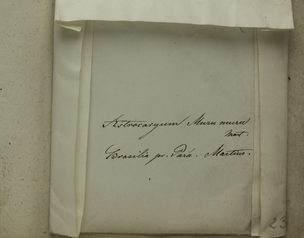 Astrocaryum Murumuru
Mart.
Brasilia pr. Pará. Martius.
23